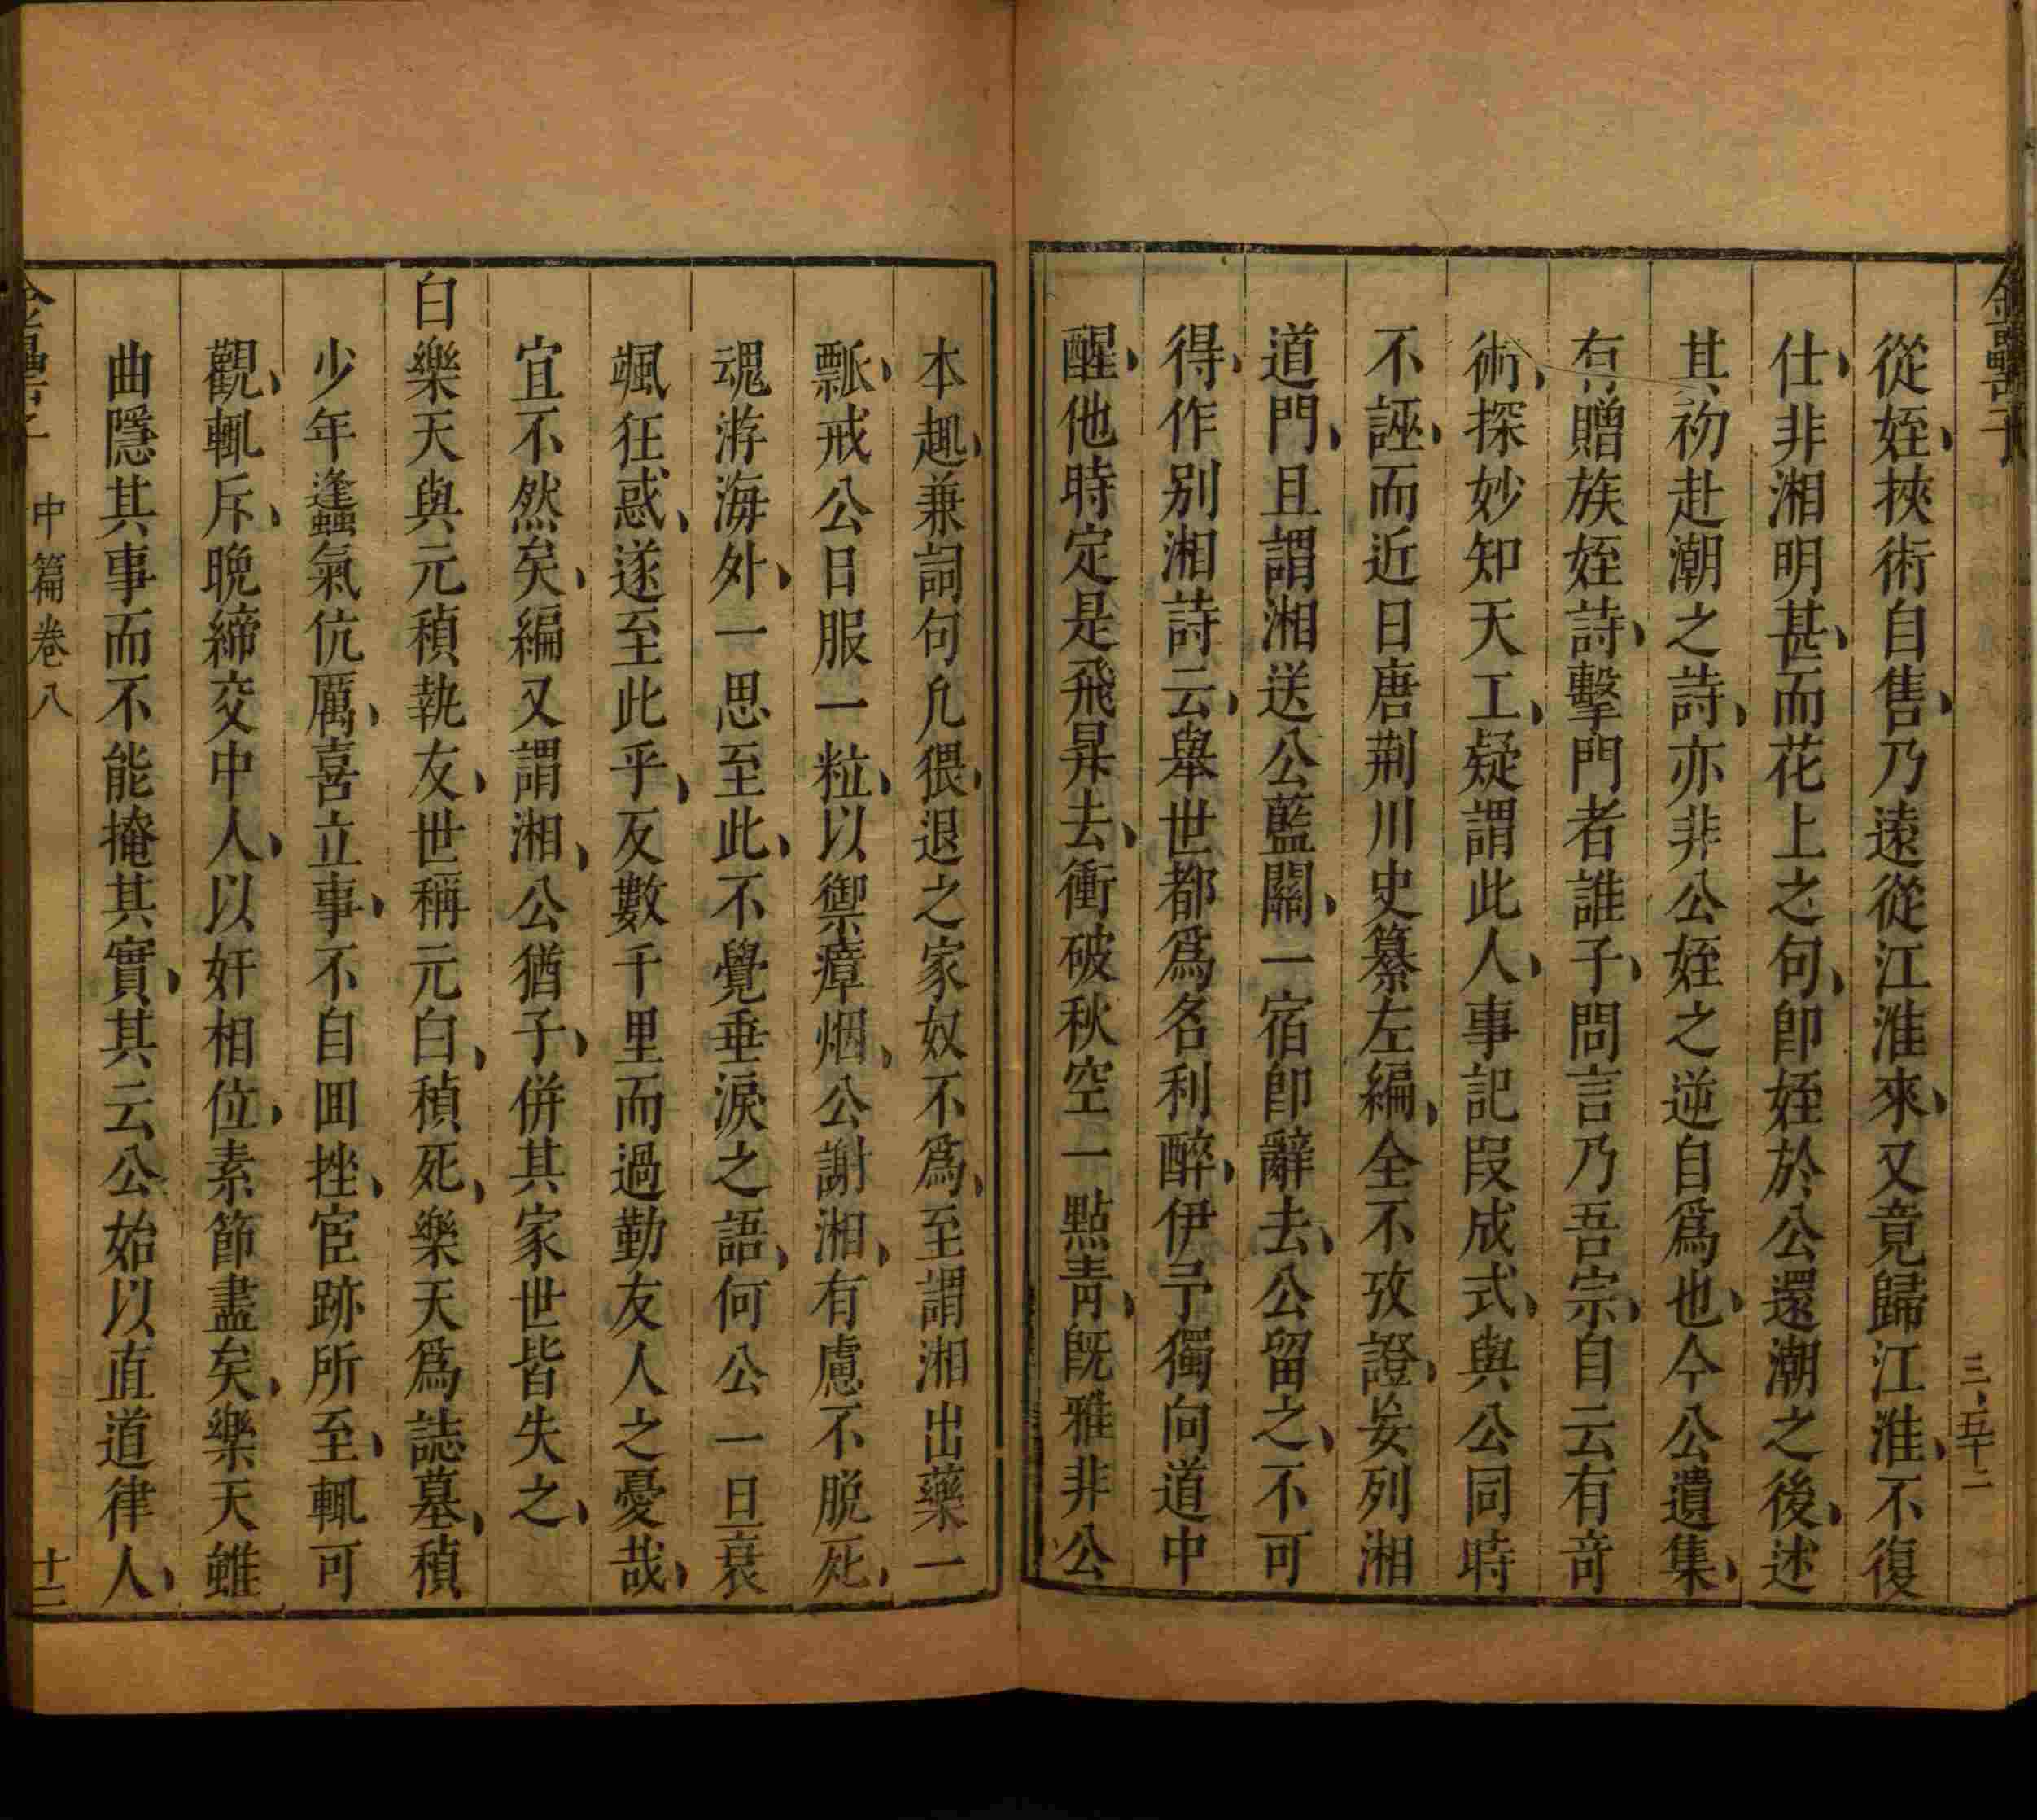 金罍子
三、五十二
從姪、挾術自售、乃遠從江淮來、又竟歸江淮、不復
仕、非湘明甚、而花上之句、卽姪於公還潮之後、述
其初赴潮之詩、亦非公姪之逆自爲也、今公遺集、
有贈族姪詩、擊門者誰子、問言乃吾宗、自云有竒
術、探妙知天工、疑謂此人、事記段成式、與公同時
不誣、而近日唐荆川史纂左編、全不攷證、妄列湘
道門、且謂湘送公藍關、一宿卽辭去、公留之、不可
得、作别湘詩云、舉世都爲名利醉、伊予獨向道中
醒、他時定是飛昇去、衝破秋空一點青、旣雅非公
本趣、兼詞句凡猥、退之家奴不爲、至謂湘出藥一
瓢、戒公日服一粒、以禦瘴烟、公謝湘、有慮不脱死、
魂游海外、一思至此、不覺垂淚之語、何公一旦衰
颯狂惑、遂至此乎、反數千里而過勤友人之憂哉、
宜不然矣、編又謂湘、公猶子、併其家世皆失之、
白樂天與元稹執友、世稱元白、稹死、樂天爲誌墓、稹
少年蠭氣伉厲、喜立事、不自囬挫、宦跡所至、輒可
觀、輒斥、晩締交中人、以奸相位、素節盡矣、樂天雖
曲隱其事而不能掩其實、其云公始以直道律人、
金罍子
中篇卷八
十二